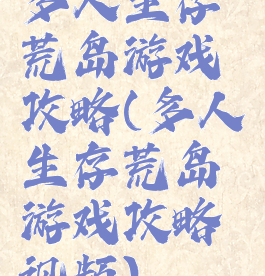 多人生存
荒岛游戏
攻略(多人
生存荒岛
游戏攻略
视频)